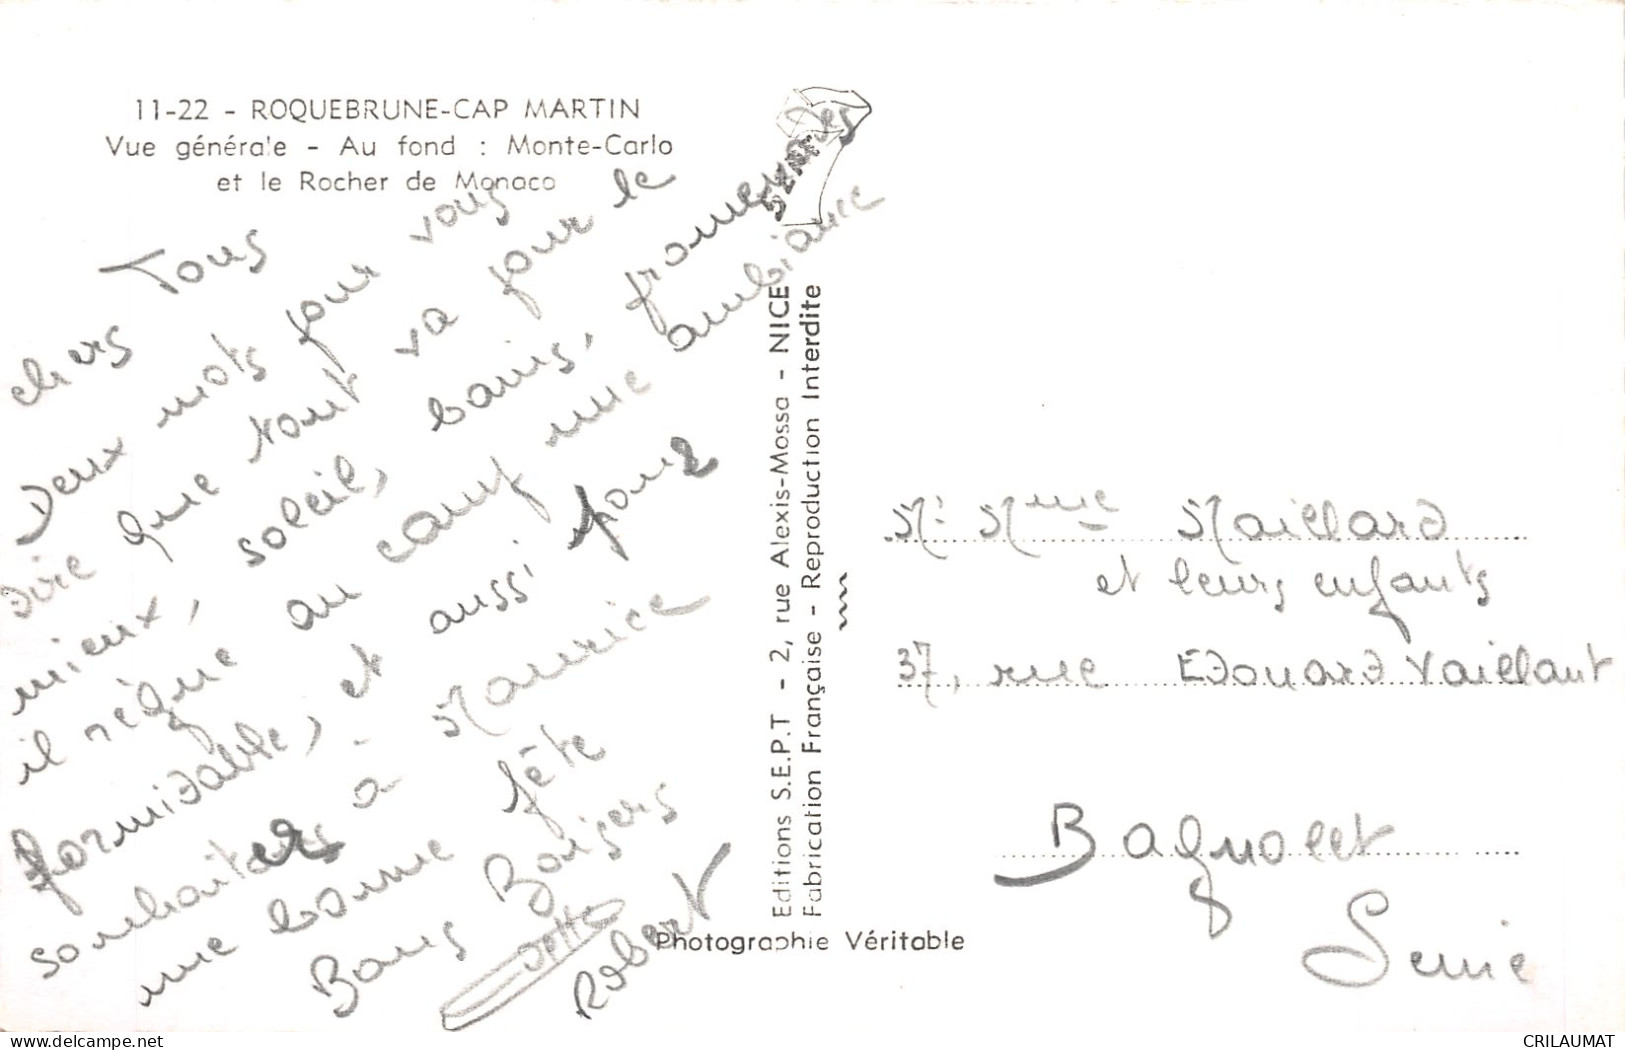 11-22 - ROQUEBRUNE-CAP MARTIN
Vue générale - Au fond : Monte-Carlo
et le Rocher de Monaco
chers Tous
Deux mots pour vous
dire que tout va pour le
mieux, soleil, bains, promenades
il règne au camp une ambiance
formidable, et aussi pour
souhaiter à Maurice
une bonne fête
Bons Baisers
Jette
Robert
Editions S.E.P.T - 2, rue Alexis-Mossa - NICE
Fabrication Française - Reproduction Interdite
Photographie Véritable
Mr Mme Maillard
et leurs enfants
37, rue Edouard Vaillant
Bagnolet
Seine
www.delcampe.net
CRILAUMAT